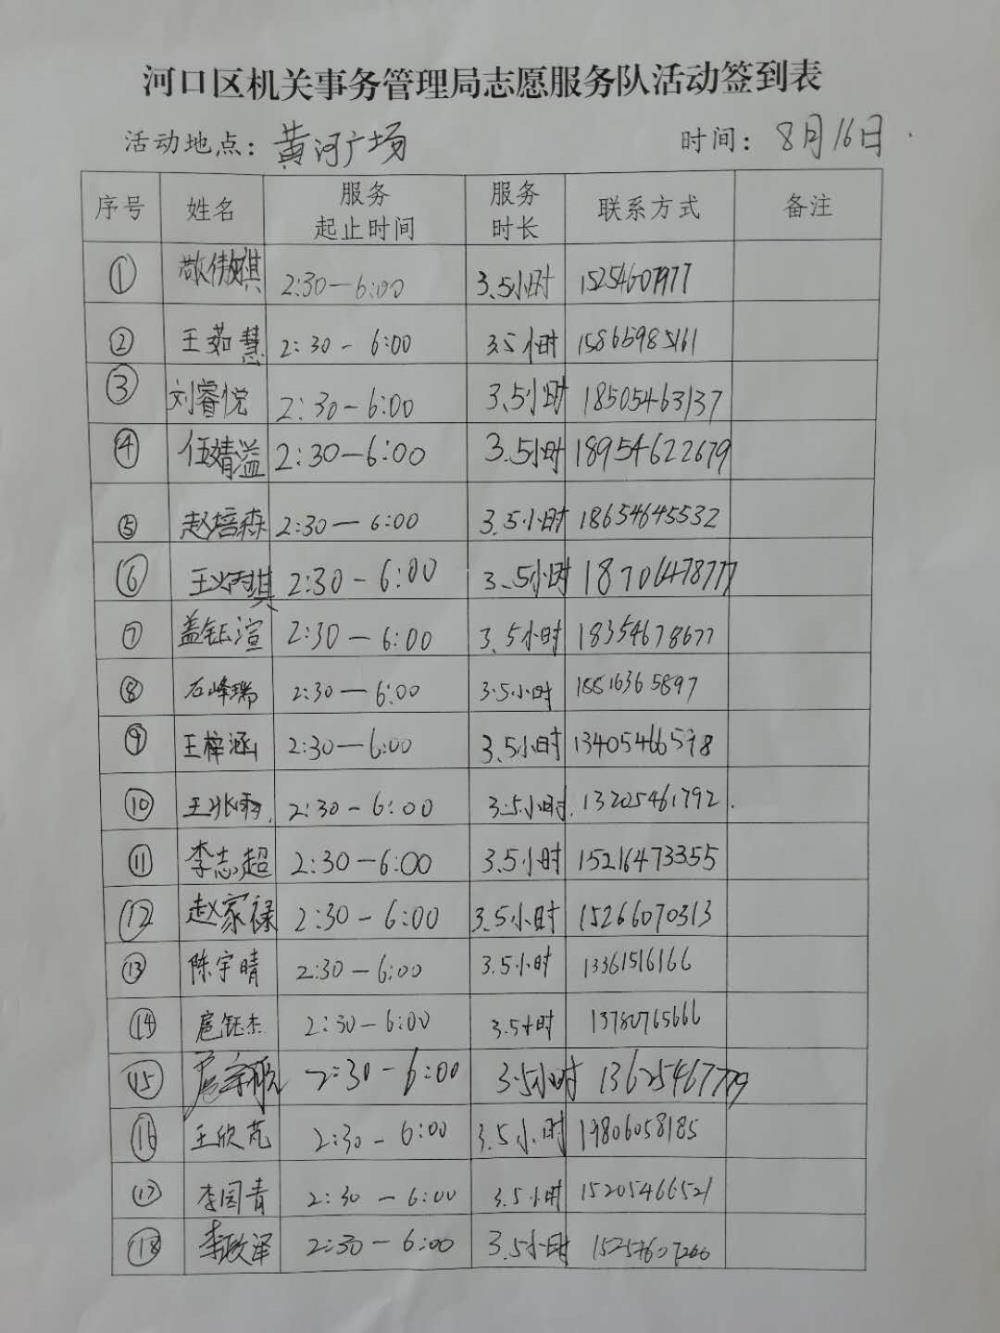 河口区机关事务管理局志愿服务队活动签到表
活动地点：黄河广场 时间：8月16日
序号 姓名 服务起止时间 服务时长 联系方式 备注
① 2:30—6:00 3.5小时 15254607977
② 王茹慧 2:30-6:00 3.5小时 15865985161
③ 刘睿悦 2:30-6:00 3.5小时 18505463137
④ 伍婧溢 2:30—6:00 3.5小时 18954622679
⑤ 赵培森 2:30—6:00 3.5小时 18654645532
⑥ 2:30-6:00 3.5小时 18706478777
⑦ 盖钰渲 2:30-6:00 3.5小时 18354678677
⑧ 石峰瑞 2:30—6:00 3.5小时 18516365897
⑨ 王梓涵 2:30—6:00 3.5小时 13405466598
⑩ 2:30-6:00 3.5小时 13205461792
⑪ 李志超 2:30—6:00 3.5小时 15216473355
⑫ 赵家禄 2:30-6:00 3.5小时 15266070313
⑬ 陈宇晴 2:30—6:00 3.5小时 13361516166
⑭ 扈钰杰 2:30-6:00 3.5小时 13780765666
⑮ 2:30-6:00 3.5小时 13625467779
⑯ 王欣苑 2:30-6:00 3.5小时 19806058185
⑰ 李国青 2:30-6:00 3.5小时 15205466521
⑱ 李政泽 2:30-6:00 3.5小时